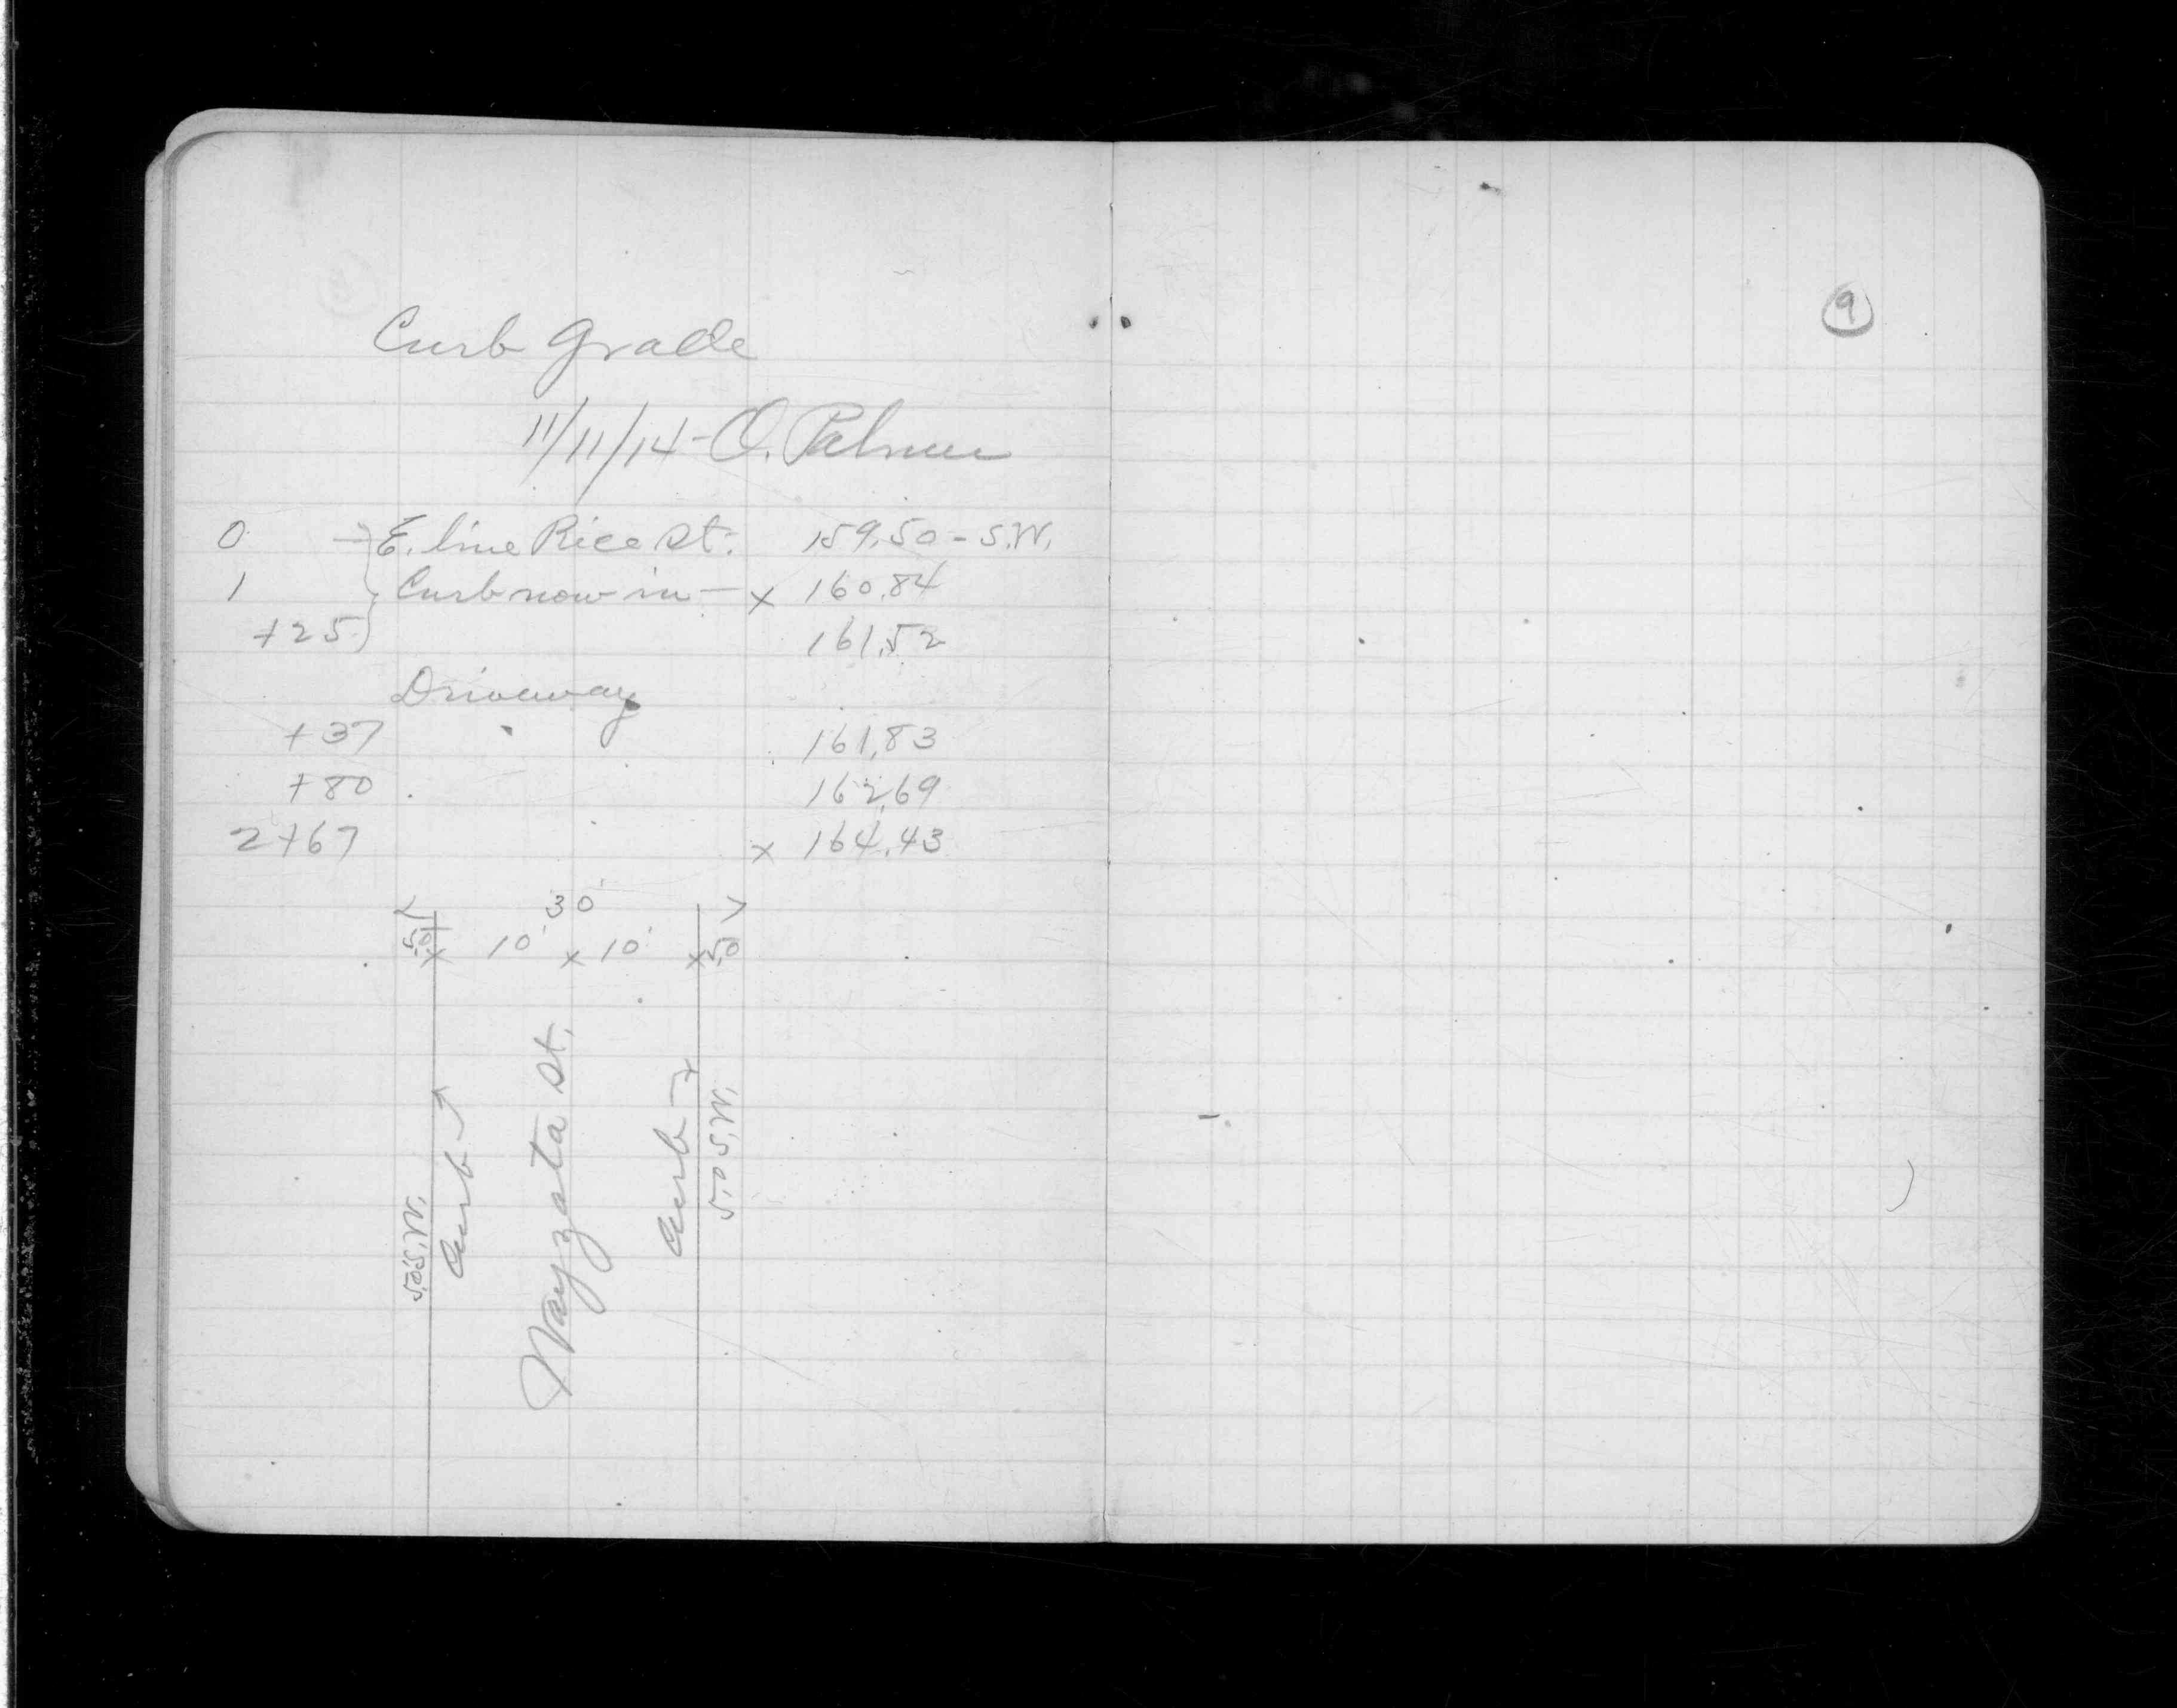 Curb Grade
11/11/14 - O. Palmer
0 E. line Rice St. 159.50 - S.W.
1 Curb now in - x 160.84
+25 161.52
Driveway
+37 161.83
+80 162.69
2+67 x 164.43
30'
5.0 x 10' x 10' x 5.0
5.0 S.W.
Curb
Wayzata St.
Curb
5.0 S.W.
9